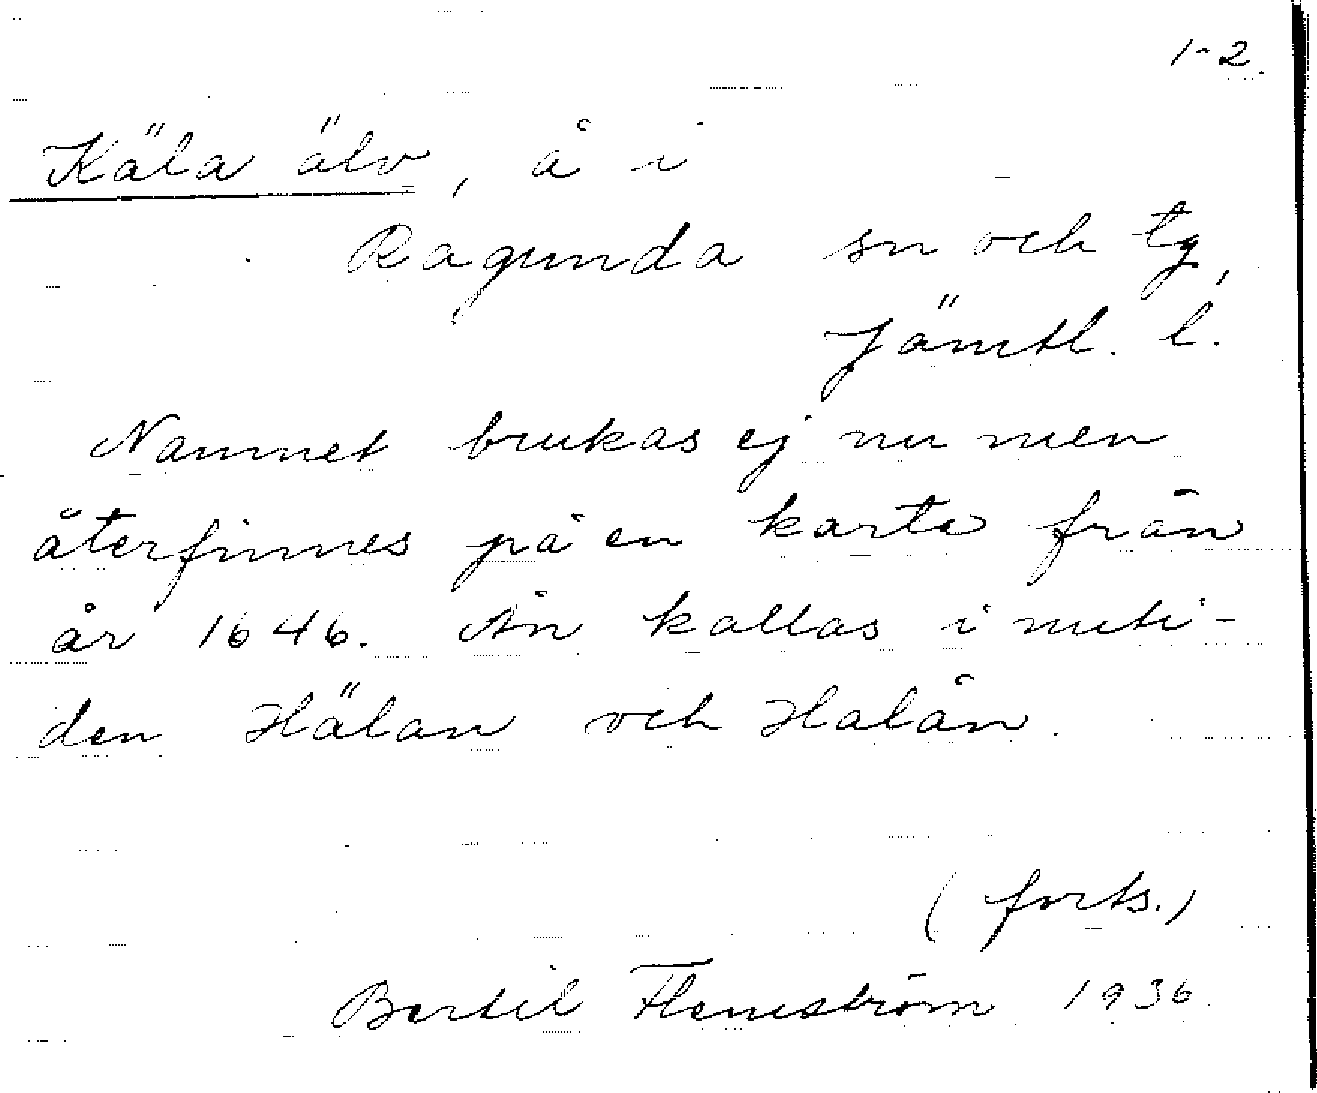 1-2.
Käla älv, å i
Ragunda sn och tg,
Jämtl. l.
Namnet brukas ej nu men
återfinnes på en karta från
år 1646. Ån kallas i nuti-
den Hälan och Halån.
(forts.)
Bertil Flemström 1936.